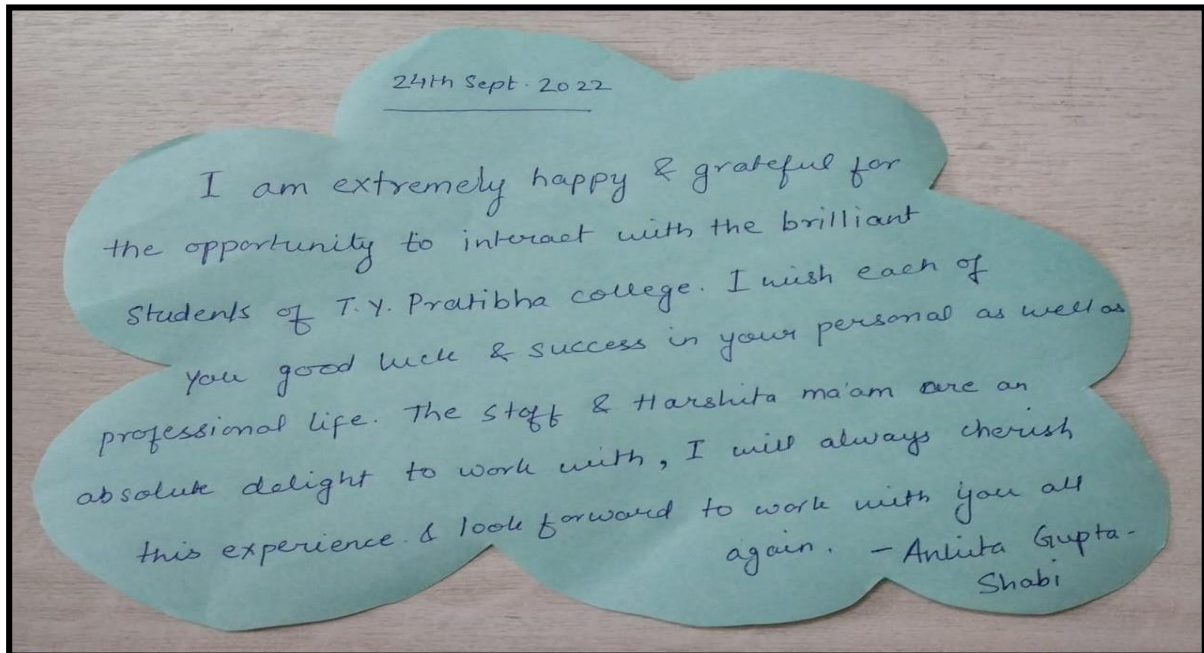 24th Sept. 2022
I am extremely happy & grateful for
the opportunity to interact with the brilliant
students of T.Y. Pratibha college. I wish each of
you good luck & success in your personal as well as
professional life. The staff & Harshita ma'am are an
absolute delight to work with, I will always cherish
this experience & look forward to work with you all
again. - Gupta-
Shabi